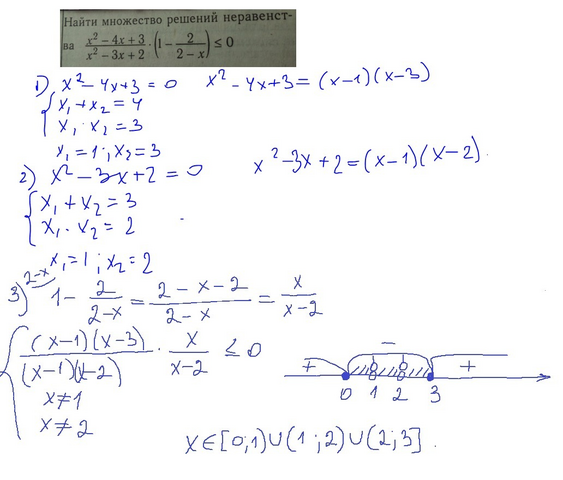 Найти множество решений неравенст-
ва (x² – 4x + 3)/(x² – 3x + 2) · (1 – 2/(2 – x)) ≤ 0
1) x² – 4x + 3 = 0    x² – 4x + 3 = (x – 1)(x – 3)
{ x₁ + x₂ = 4
x₁ · x₂ = 3
x₁ = 1; x₂ = 3
2) x² – 3x + 2 = 0    x² – 3x + 2 = (x – 1)(x – 2)
{ x₁ + x₂ = 3
x₁ · x₂ = 2
x₁ = 1; x₂ = 2
3) 2–x
1 – 2/(2 – x) = (2 – x – 2)/(2 – x) = x/(x – 2)
{ (x – 1)(x – 3)/((x – 1)(x – 2)) · x/(x – 2) ≤ 0
x ≠ 1
x ≠ 2
+ – +
0 1 2 3
x ∈ [0; 1) ∪ (1; 2) ∪ (2; 3].